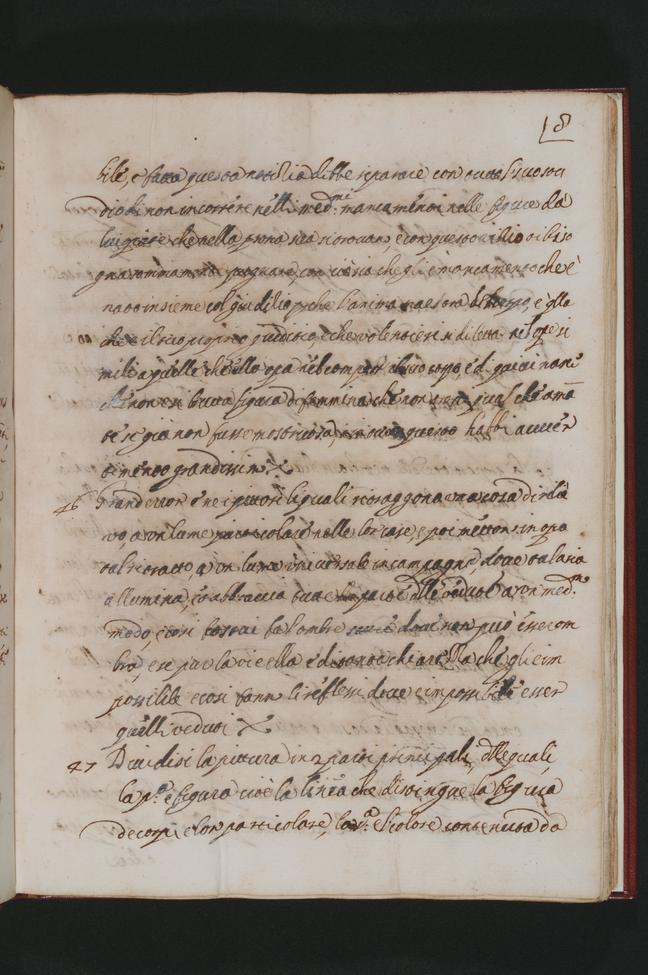 18
bile, e fatta questa notitia debbe riparare con tutto il suo stu
dio di non incorrere nelli med.mi mancamenti nelle figure da
lui giete che nella prima sua si trovano, e con questo vitio ti biso
gna sommamente pugnare, con cio sia che gli è mancamento che è
nato insieme col giuditio, perche l'anima maestra del tuo corpo, è q.lla
che è il tuo proprio giuditio, e che volentieri si diletta nel'opere si
mili a quelle che ella opera nel compor il suo corpo, e di qui nasce
che non è si brutta figura di femmina che non trovi qual che aman
te se gia non fusse mostruosa, questo habbi avver
timento grandissimo
46 Grand'error è ne i pittori li quali ritraggono una cosa di rilie
vo, a un lume particolare nelle lor case, e poi mettono in opra
tal ritratto, a un lume universale in campagna, dove tal aria
allumina, et abbraccia tutte le parti delle vedute a un med.mo
modo, e cosi costui fa l'ombre dove non può essere om
bra, e se pur la vi è ella è di tanto chiarezza che gli è im
possibile e cosi fanno li reflessi dove è impossibile esser
quelli veduti
47 Dividesi la pittura in 2 parti principali, delle quali,
la p.a è figura cioè la linea che distingue la figura
de corpi, e lor particolare, la 2.a è il colore contenuto da